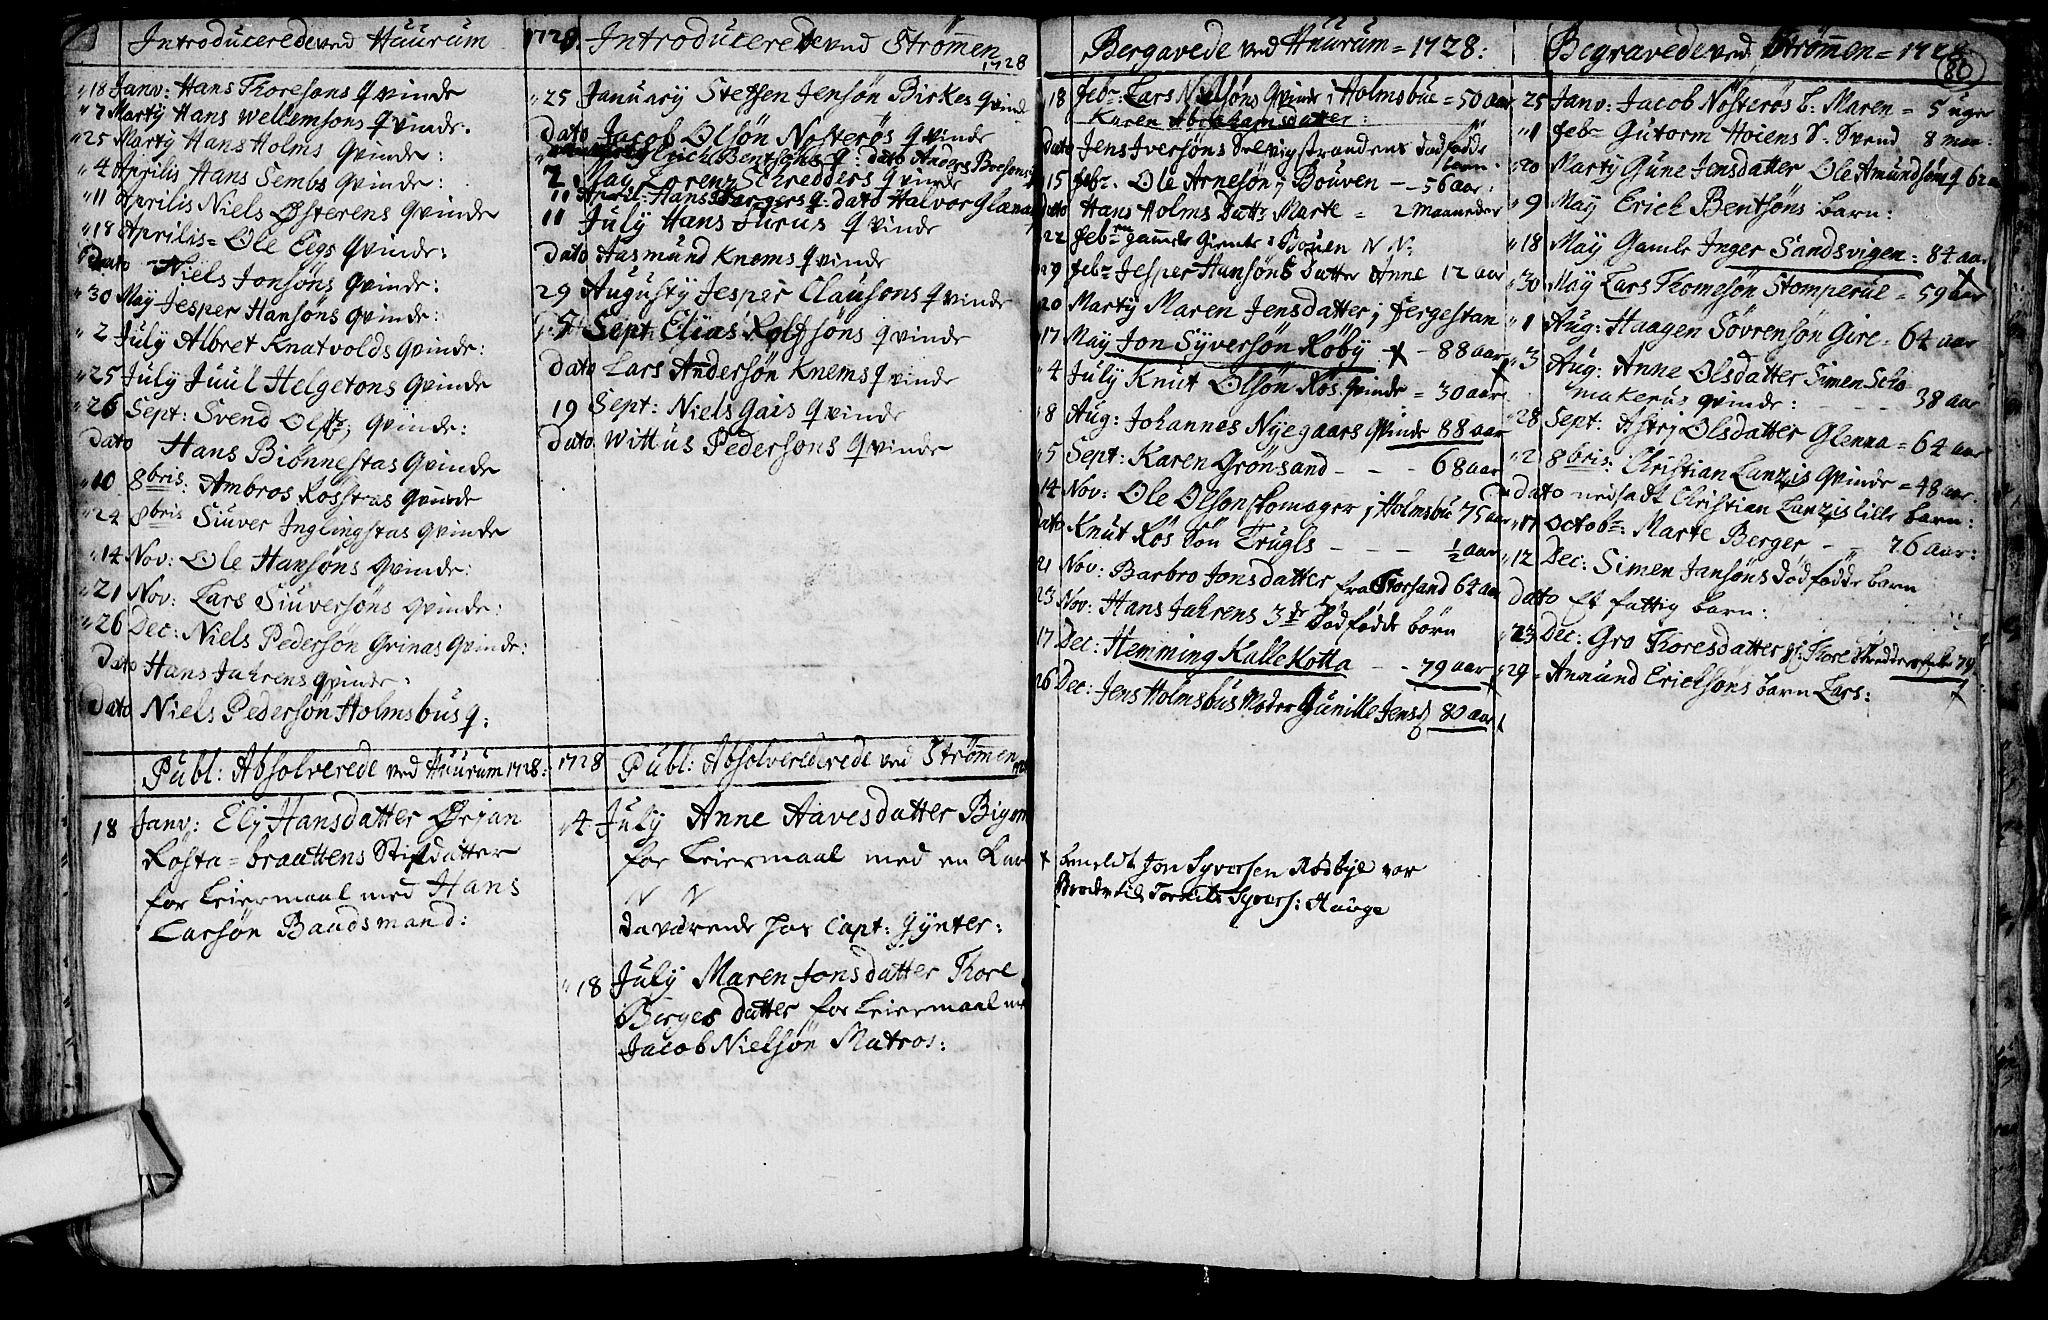 Introducerede ved Huurum 1728
18 Janv: Hans Thoresons qvinde
" 7 Marty Hans Wellemsons qvinde.
" 25 Marty Hans Holms Qvinde:
" 4 Aprilis Hans Sembs Qvinde:
" 11 Aprilis Niels Østerens Qvinde
" 18 Aprilis = Ole Eegs Qvinde:
Dato Niels Jonsöns Qvinde:
" 30 May Jesper Hansöns Qvinde:
" 2 July Albret Knatvolds Qvinde:
" 25 July Juul Helgetons Qvinde
" 26 Sept: Svend Qvinde:
Dato Hans Bionnestas Qvinde
" 10 8bris: Ambros Rosstas Qvinde
" 24 8bris Siuver Inglingstas Qvinde
" 14 Nov: Ole Hansöns Qvinde:
" 21 Nov: Lars Siuversöns Qvinde:
" 26 Dec: Niels Pedersön Grinas Qvinde:
Dato Hans Jahrens Qvinde:
Dato Niels Pedersön Holmsbus q:
Publ: Absolverede ved Huurum 1728:
18 Janv: Elj Hansdatter Ørjan
Rosta = brauttens Stifdatter
for Leiermaal med Hans
Larsön Baadsmand:
Introducerede ved Strömen 1728
" 25 January Steffen Jensön Birkes Qvinde
Dato Jacob Olsön Nosterös qvinde
Erich Bentsöns q: dato Anders Boesons
2 May Lorenz Schredders qvinde
11 April: Hans Bergers q: dato Halvor Glenas
11 July Hans Jurus qvinde
Dato Aasmund Knems qvinde
29 Augusty Jesper Clausons qvinde
5 Sept: Elias Rolfsöns qvinde
Dato Lars Andersön Knems qvinde
19 Sept: Niels Gais qvinde
Dato Wittus Pedersons qvinde
1728 Publ: Absolvererede ved Strömen
" 4 July Anne Aavesdatter
for Leiermaal med en
N N
Daværende hos Capt: Gynter:
" 18 July Maren Jonsdatter Thore
Berges datter for Leiermaal
Jacob Nielsön Matros:
Bergavede ved Huurum = 1728:
18 Febr: Lars Nielsöns Qvinde i Holmsbue = 50 aar
Karen Abrahamsdatter:
Dato Jens Iversöns Selvigstrandens dödfödde
barn
15 Febr: Ole Arnesön i Bouven - - 56 aar:
Dato Hans Holms Datt: Marte = 2 Maaneder
22 Febr: gamle N N:
29 Febr: Jesper Hansöns Datter Anne 12 aar
20 Marty Maren Jensdatter j Fergestan
17 May Jon Syversön Röby x - 88 aar
" 4 July Knut Olsön Rös Qvinde = 30 aar
" 8 Aug: Johannes Nyegaars Qvinde 88 aar
" 5 Sept: Karen Grönsand - - - 68 aar
14 Nov: Ole Olson skomager j Holmsbu 75 aar
Dato Knut Rös Sön Trugls - - - ½ aar
21 Nov: Barbro Jonsdatter fra Storsand 64 aar
23 Nov: Hans Jahrens 3de Dödfödde börn
17 Dec: Hemming Kallekotta - - 79 aar
26 Dec: Jens Holmsbus Moder Gunille Jensd 80 aar
x bemeldt Jon Syversen Rødbye var
Broder til Torkild Syvers: Hauge
Begravede ved Strömen = 1728
86
25 Janv: Jacob Nosterös b: Maren = 5 uger
" 1 Febr: Gutorm Hoiens S: Svend 8 maa:
" 20 Marty Gune Jensdatter Ole Amundsöns q 62
" 9 May Erick Bentsöns barn:
" 18 May Gamle Inger Sandsvigen = 84 aar
" 30 May Lars Thomesön Stomperue = 59 aar
" 1 Aug: Haagen Sövrensön Gire = 64 aar
" 3 Aug: Anne Olsdatter Simen Sko
makerus qvinde: - - - 38 aar
" 28 Sept: Astrj Olsdatter Glenna = 64 aar
" 2 8bris: Christian Lanzis Qvinde = 48 aar.
Dato nedsadt Christian Lanzis lille barn:
" 17 Octobr: Marte Berger - - 76 aar:
" 12 Dec: Simen Jansöns dödfödde barn
Dato Et fattig barn:
" 23 Dec: Gro Thoresdatter 79
" 29 - Amund Ericksöns barn Lars: